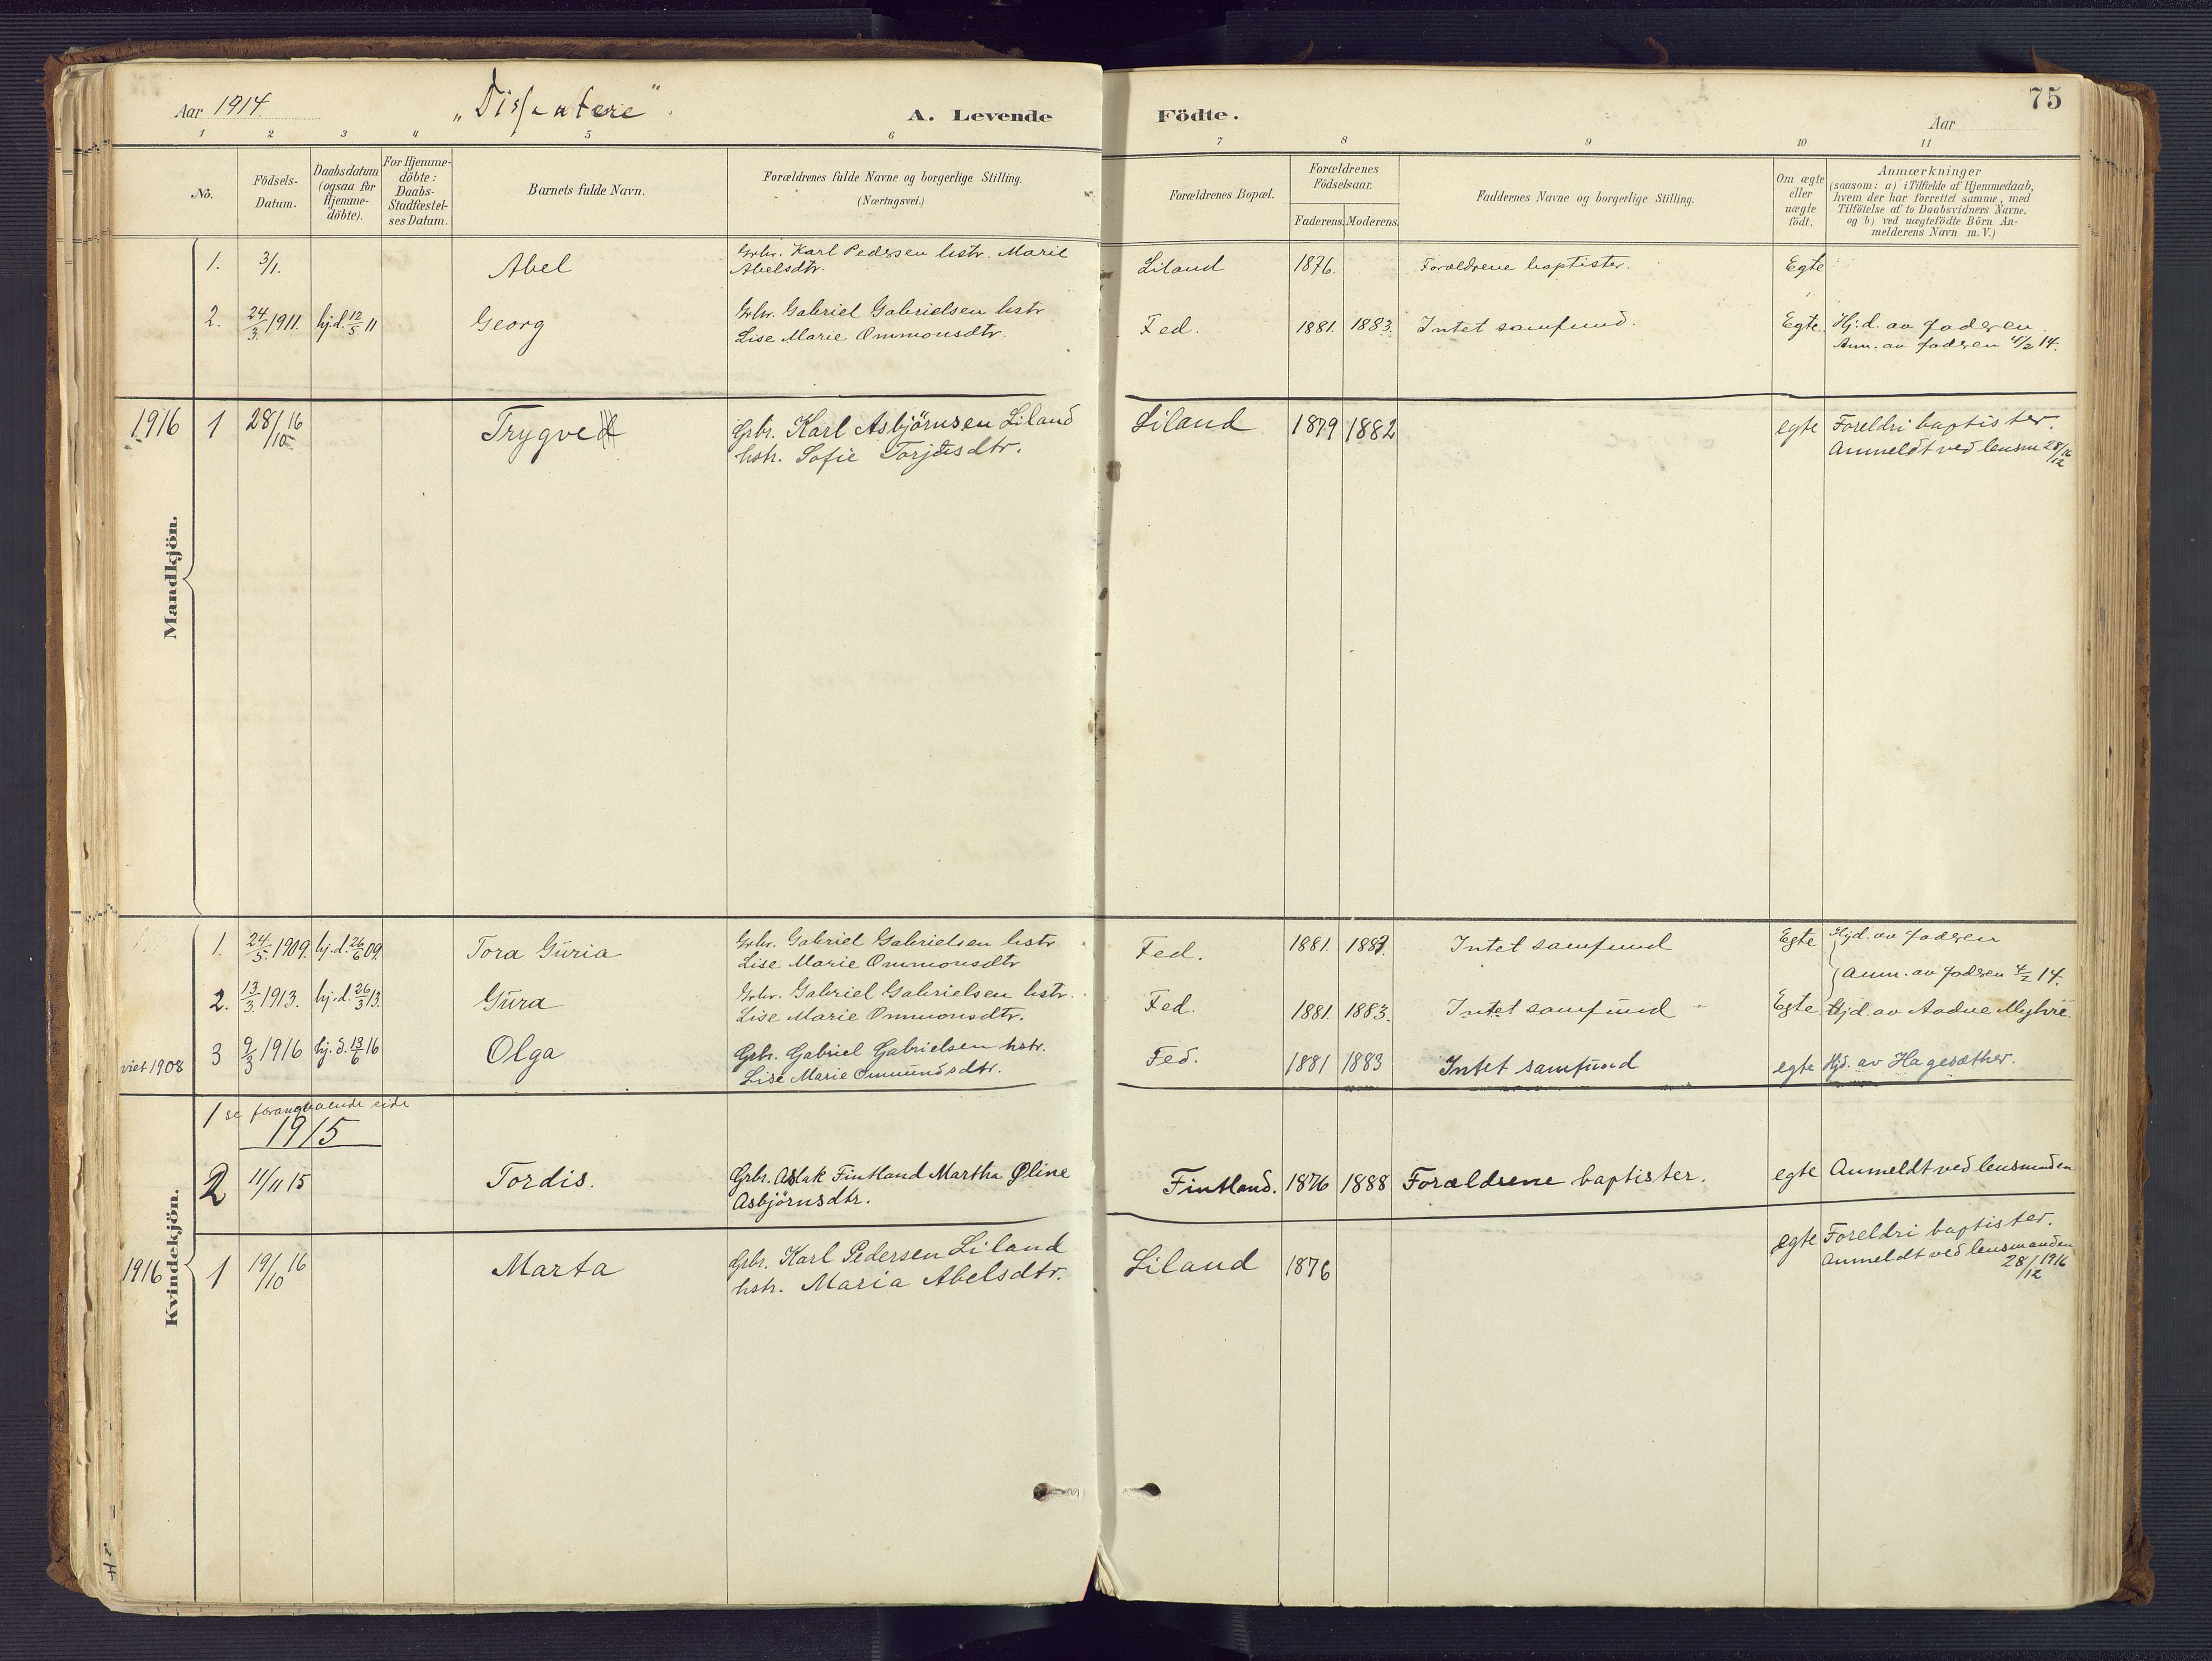 Aar 1914. „Dissentere" A. Levende Födte. Aar 75
1 2 3 4 5 6 7 8 9 10 11
No.
Födsels-
Datum.
Daabsdatum
(ogsaa för
Hjemme-
döbte).
For Hjemme-
döbte:
Daabs-
Stadfæstel-
ses Datum.
Barnets fulde Navn.
Forældrenes fulde Navne og borgerlige Stilling.
(Næringsvei.)
Forældrenes Bopæl.
Forældrenes
Födselsaar.
Faderens. Moderens.
Faddernes Navne og borgerlige Stilling.
Om ægte
eller
uægte
födt.
Anmærkninger
(saasom: a) i Tilfælde af Hjemmedaab,
hvem der har forrettet samme, med
Tilföielse af to Daabsvidners Navne,
og b) ved uægtefödte Börn An-
melderens Navn m. V.)
Mandkjön.
1. 3/1. Abel Grbr. Karl Pedersen hstr. Marie
Abelsdtr. Liland 1876. Forældrene baptister. Egte
2. 24/3. 1911. hj.d. 12/5 11 Georg Grbr. Gabriel Gabrielsen hstr
Lise Marie Ommonsdtr. Fed. 1881. 1883. Intet samfund. Egte. Hj.d. av faderen
Anm. av faderen 4/2 14.
1916 1 28/10 16 Trygve Grbr. Karl Asbjörnsen Liland
hstr. Sofie Torjusdtr. Liland 1879 1882 egte Foreldri baptister.
Anmeldt ved lensm 28/12 16
Kvindekjön.
1. 24/5. 1909. hj.d. 26/6 09. Tora Guria Grbr. Gabriel Gabrielsen hstr
Lise Marie Ommonsdtr Fed. 1881. 1883. Intet samfund Egte Hjd. av faderen
Anm. av faderen 4/2 14.
2. 13/3. 1913. hj.d. 26/3 13. Gura Grbr. Gabriel Gabrielsen hstr.
Lise Marie Ommonsdtr. Fed. 1881. 1883. Intet samfund Egte Hjd. av Aadne Myhre.
viet 1908 3 9/3 1916 hj.d. 13/6 16 Olga Grbr. Gabriel Gabrielsen hstr.
Lise Marie Ommundsdtr. Fed. 1881 1883 Intet samfund egte Hjd. av Hagesæther.
1 se foranstaaende side
1915
2 11/11 15 Tordis. Grbr. Aslak Fintland Martha Oline
Asbjörnsdtr. Fintland. 1876 1888 Forældrene baptister. egte Anmeldt ved lensmanden
1916 1 19/10 16 Marta Grbr. Karl Pedersen Liland
hstr. Maria Abelsdtr. Liland 1876 egte Foreldri baptister.
Anmeldt ved lensmanden
28/12 1916